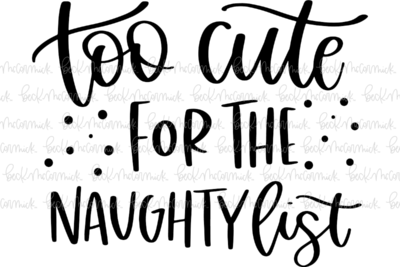 too cute
FOR THE
NAUGHTY list